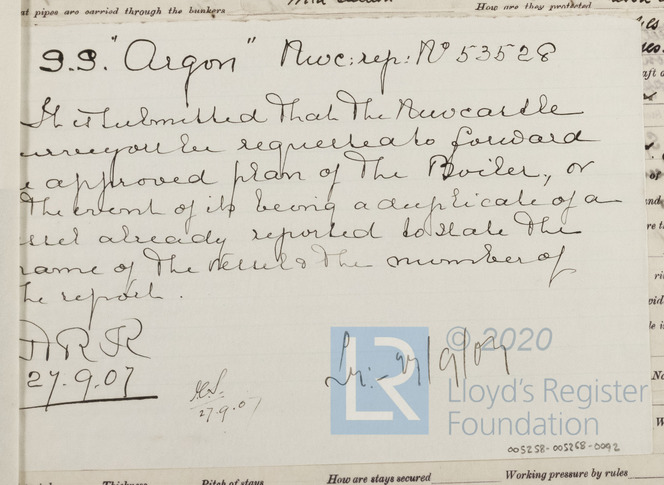 at pipes are carried through the bunkers
How are they protected
S.S. "Argon" Nwc: rep: No 53528
It is submitted that the Newcastle
urveyors be requested to forward
e approved plan of the Boiler, or
the event of its being a duplicate of a
ssel already reported to state the
name of the vessel & the number of
he report.
A R R
27.9.07
27.9.07
Lr:- 27/9/07
LR
© 2020
Lloyd's Register
Foundation
005258-005268-0092
Thickness
Pitch of stays
How are stays secured
Working pressure by rules